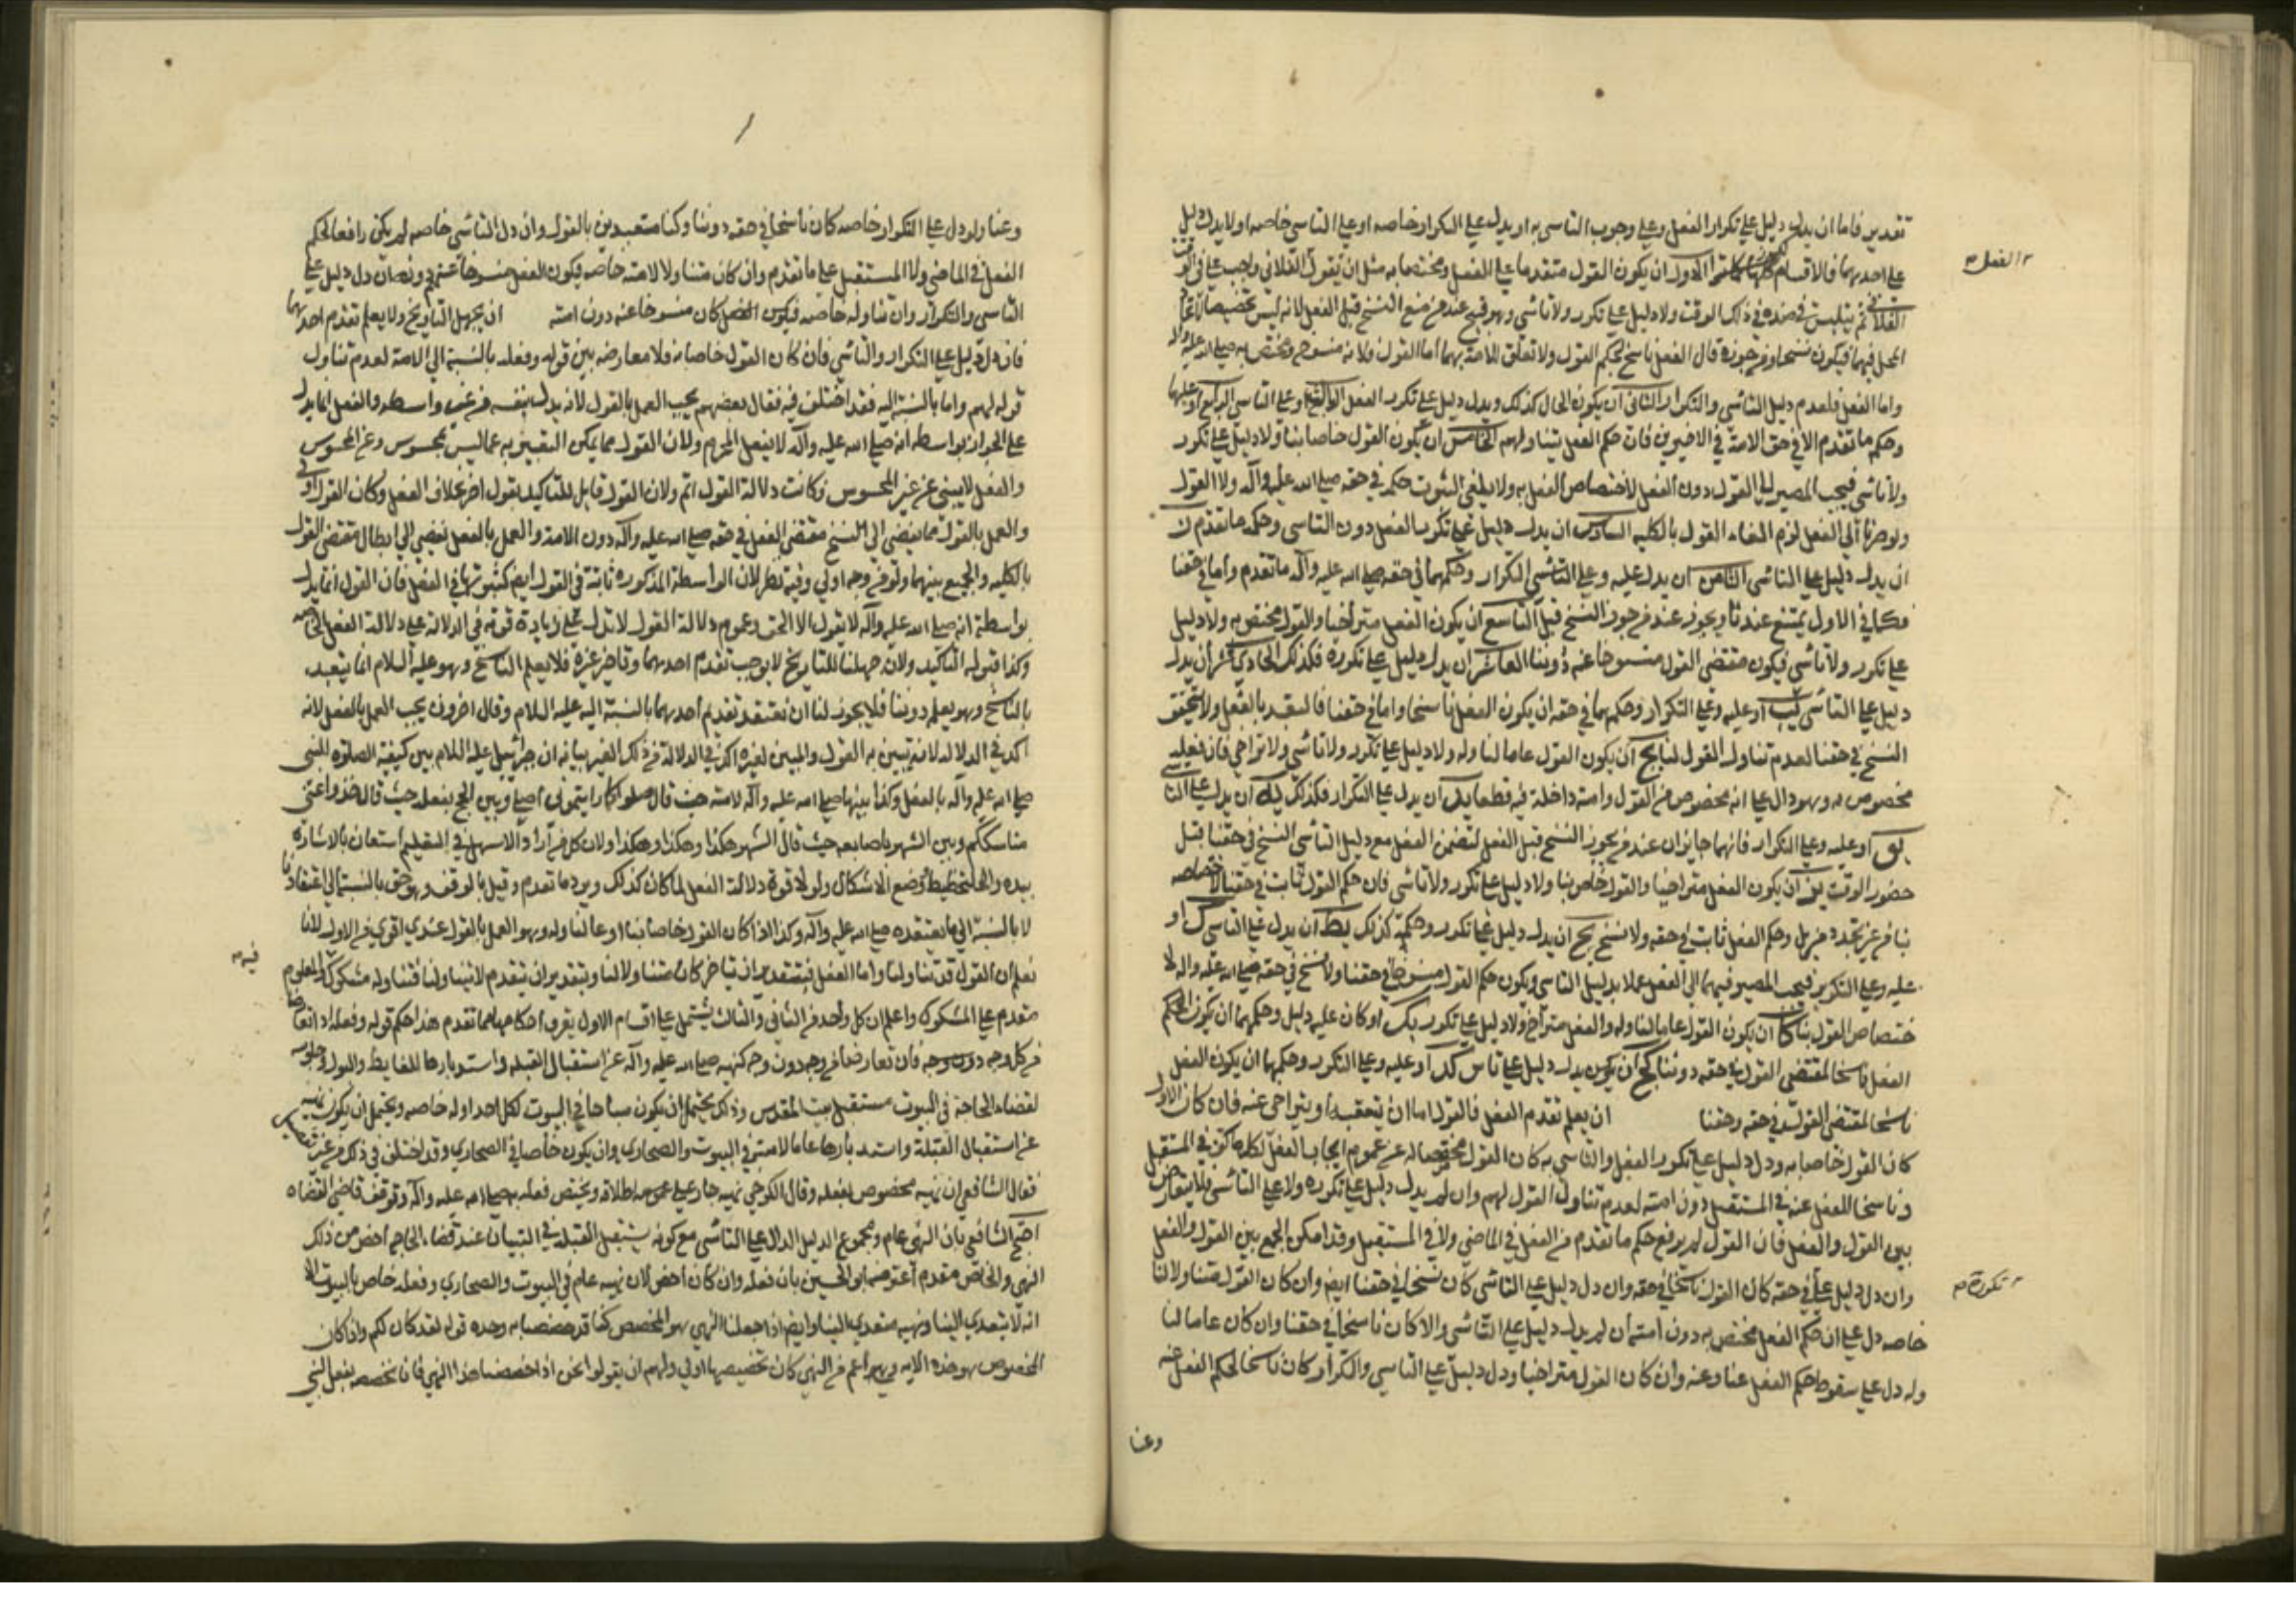 تقدير فاما ان يدل دليل على تكرار الفعل وعلى وجوب التاسي به او يدل على التكرار خاصه او على التاسي خاصه او لا يدل دليل
على احدهما فالاقسام الاول ان يكون القول متقدما على الفعل ومختصا به مثل ان يقول الفلاني واجب علي في الوقت
الفلاني ثم يتلبس في ضده في ذلك الوقت ولا دليل على تكرر ولا تاسي وهو قبيح عند من منع النسخ قبل الفعل لانه ليس تخصيصا لاتحاد
المحل فيهما فيكون نسخا ومن جوزه قال الفعل ناسخ لحكم القول ولا تعلق للامة بهما اما القول فلانه منسوخ ومختص به صلى الله عليه وآله
واما الفعل فلعدم دليل التاسي والتكرار الثاني ان يكون الحال كذلك ويدل دليل على تكرر الفعل او على التاسي الرابع او عليهما
وحكم ما تقدم الا في حق الامة في الاخيرين فان حكم الفعل يتناولهم الخامس ان يكون القول خاصا بنا ولا دليل على تكرر
ولا تاسي فيجب المصير الى القول دون الفعل لاختصاص الفعل به ولا يلغى الثبوت حكمه في حقه صلى الله عليه وآله ولا القول
ولو صرنا الى الفعل لزم الغاء القول بالكليه السادس ان يدل دليل على تكرر الفعل دون التاسي وحكمه ما تقدم
ان يدل دليل على التاسي الثامن ان يدل عليه وعلى التاسي التكرار وحكمهما في حقه صلى الله عليه وآله ما تقدم واما في حقنا
فكما في الاول يمتنع عندنا ويجوز عند من جوز النسخ قبل التاسع ان يكون الفعل متراخيا والقول مختص به ولا دليل
على تكرر ولا تاسي فيكون مقتضى القول منسوخا عنه دوننا العاشر ان يدل دليل على تكرره فكذلك الحادي عشر ان يدل
دليل على التاسي يب او عليه وعلى التكرار وحكمهما في حقه ان يكون الفعل ناسخا واما في حقنا فالتعبد بالفعل ولا يتحقق
النسخ في حقنا لعدم تناول القول لنا يج ان يكون القول عاما لنا وله ولا دليل على تكرر ولا تاسي ولا تراخي فان فعله
مخصوص به وهو دال على انه مخصوص من القول وامته داخلة فيه قطعا يد ان يدل على التكرار فكذلك يه ان يدل على التا
يو او عليه وعلى التكرار فانهما جايزان عند من يجوز النسخ قبل الفعل لتضمن الفعل مع دليل التاسي النسخ في حقنا قبل
حضور الوقت يز ان يكون الفعل متراخيا والقول خاص بنا ولا دليل على تكرر ولا تاسي فان حكم القول ثابت في حقنا لاختصاصه
بنا من غير تجدد مزيل وحكم الفعل ثابت في حقه ولا نسخ يح ان يدل دليل على تكرر وحكمه كذلك يط ان يدل على التاسي ك او
عليه وعلى التكرير فيجب المصير فيهما الى الفعل عملا بدليل التاسي ويكون حكم القول منسوخا في حقنا ولا نسخ في حقه صلى الله عليه واله لا
ختصاص القول بنا كا ان يكون القول عاما لنا وله والفعل متراخ ولا دليل على تكرر كب او كان عليه دليل وحكمهما ان يكون الحكم
الفعل ناسخا لمقتضى القول في حقه دوننا كج ان يدل دليل على تاس كد او عليه وعلى التكرر وحكمهما ان يكون الفعل
ناسخا لمقتضى القول في حقه وحقنا ان يعلم تقدم الفعل فالقول اما ان يتعقبه او يتراخى عنه فان كان الاول
كان القول خاصا به ودل دليل على تكرر الفعل والتاسي به كان القول مخصصا له عن عموم ايجاب الفعل لكل مكلف في المستقبل
وناسخا للفعل عنه في المستقبل دون امته لعدم تناول القول لهم وان لم يدل دليل على تكرره ولا على التاسي فلا تعارض
بين القول والفعل فان القول لم يرفع حكم ما تقدم من الفعل في الماضي ولا في المستقبل وقد امكن الجمع بين القول والفعل
وان دل دليل على في حقه كان القول ناسخا في حقه وان دل دليل على التاسي كان نسخا في حقنا ايض وان كان القول متناولا لنا
خاصه دل على ان حكم الفعل مختص به دون امته ان لم يدل دليل على التاسي والا كان ناسخا في حقنا وان كان عاما لنا
وله دل على سقوط حكم الفعل عنا وعنه وان كان القول متراخيا ودل دليل على التاسي والتكرار كان ناسخا لحكم الفعل عنه
الفعل
تكرره
وعنا
وعنا ولو دل على التكرار خاصه كان ناسخا في حقه دوننا وكنا متعبدين بالقول وان دل التاسي خاصه لم يكن رافعا لحكم
الفعل في الماضي ولا المستقبل على ما تقدم وان كان متناولا لامته خاصه فيكون الفعل منسوخا عنهم دونه ان دل دليل على
التاسي والتكرار وان تناوله خاصه كان منسوخا عنه دون امته ان يجهل التاريخ ولا يعلم تقدم احدهما
فان دل دليل على التكرار والتاسي فان كان القول خاصا به فلا معارضه بين قوله وفعله بالنسبة الى الامة لعدم تناول
قوله لهم واما بالنسبة اليه فقد اختلف فيه فقال بعضهم يجب العمل بالقول لانه يدل بنفسه من غير واسطه والفعل انما يدل
على الجواز بواسطه انه صلى الله عليه وآله لا يفعل المحرم ولان القول مما يمكن التعبير به عما ليس بمحسوس وعن المحسوس
والفعل لا يبنى عن غير المحسوس فكانت دلالة القول اتم ولان القول قابل للتاكيد بقول اخر بخلاف الفعل وكان القول اولى
والعمل بالقول مما يفضي الى نسخ مقتضى الفعل في حقه صلى الله عليه وآله دون الامة والعمل بالفعل يفضي الى ابطال مقتضى القول
بالكليه والجمع بينهما ولو من وجه اولى وفيه نظر لان الواسطة المذكوره ثابتة في القول ايض كثبوتها في الفعل فان القول انما يدل
بواسطة انه صلى الله عليه وآله لا يقول الا الحق وعموم دلالة القول لا تدل على زيادة قوته في الدلالة على دلالة الفعل الخاصه
وكذا قبوله التاكيد ولان جهلنا للتاريخ لا يوجب تقدم احدهما وتاخر غيره فلا يعلم الناسخ وهو عليه السلام انما يتعبد
بالناسخ وهو يعلم دوننا فلا يجوز لنا ان نعتقد تقديم احدهما بالنسبة اليه عليه السلام وقال اخرون يجب العمل بالفعل لانه
اكد في الدلالة لانه يتبين به القول والمبين لغيره اكد في الدلالة من ذلك الغير بيانه ان جبرائيل عليه السلام بين كيفية الصلوة للنبي
صلى الله عليه وآله بالفعل وكذا بينها صلى الله عليه وآله لامته حيث قال صلوا كما رايتموني اصلي وبين الحج بفعله حيث قال خذوا عني
مناسككم وبين الشهر باصابعه حيث قال الشهر هكذا وهكذا وهكذا ولان كل من اراد الاسهل في التعليم استعان بالاشارة
بيده والتخطيط ووضع الاشكال ولولا قوة دلالة الفعل لما كان كذلك ويرد ما تقدم وقيل بالوقف وهو حق بالنسبة الى اعتقادنا
لا بالنسبة الى ما يعتقده صلى الله عليه وآله وكذا اذا كان القول خاصا بنا او عاما لنا وله وهو العمل بالقول عندي اقوى من الاول لانا
نعلم ان القول قد تناولنا واما الفعل فبتقدير ان تاخر كان متناولا لنا وبتقدير ان يتقدم لا يتناولنا فتناوله مشكوك والمعلوم
مقدم على المشكوك واعلم ان كل واحد من الثاني والثالث يشتمل على اقسام الاول يعرف احكامها مما تقدم هذا حكم قوله وفعله اذا تعارضا
من كل وجه فان تعارضا من وجه دون وجه كنهيه صلى الله عليه وآله عن استقبال القبلة واستدبارها للغايط والبول وجلوسه
لقضاء الحاجة في البيوت مستقبل بيت المقدس وذلك يحتمل ان يكون مباحا في البيوت لكل احد او له خاصه ويحتمل ان يكون نهيه
عن استقبال القبلة واستدبارها عاما لامته في البيوت والصحاري وان يكون خاصا في الصحاري وقد اختلف في ذلك من غير تفصيل
فقال الشافعي ان نهيه مخصوص بفعله وقال الكرخي نهيه جار على اطلاقه ويختص فعله به صلى الله عليه وآله وتوقف قاضي القضاه
احتج الشافعي بان النهي عام ومجموع الدليل الدال على التاسي مع كونه يستقبل القبلة في البنيان عند قضاء الحاجه اخص من ذلك
النهي والخاص مقدم اعترضه ابو الحسين بان فعله وان كان اخص لان نهيه عام في البيوت والصحاري وفعله خاص بالبيوت الا
انه لا يتعدى الينا ونهيه متعدي الينا وايض اذا جعلنا النهي هو المخصص كنا قد خصصنا به وحده قوله لقد كان لكم واذا كان
المخصوص هو هذه الايه وهي اعم من النهي كان تخصيصها اولى ولهم ان يقولوا نحن اذا خصصنا هذا النهي فانا نخصه بفعل النبي
فيه